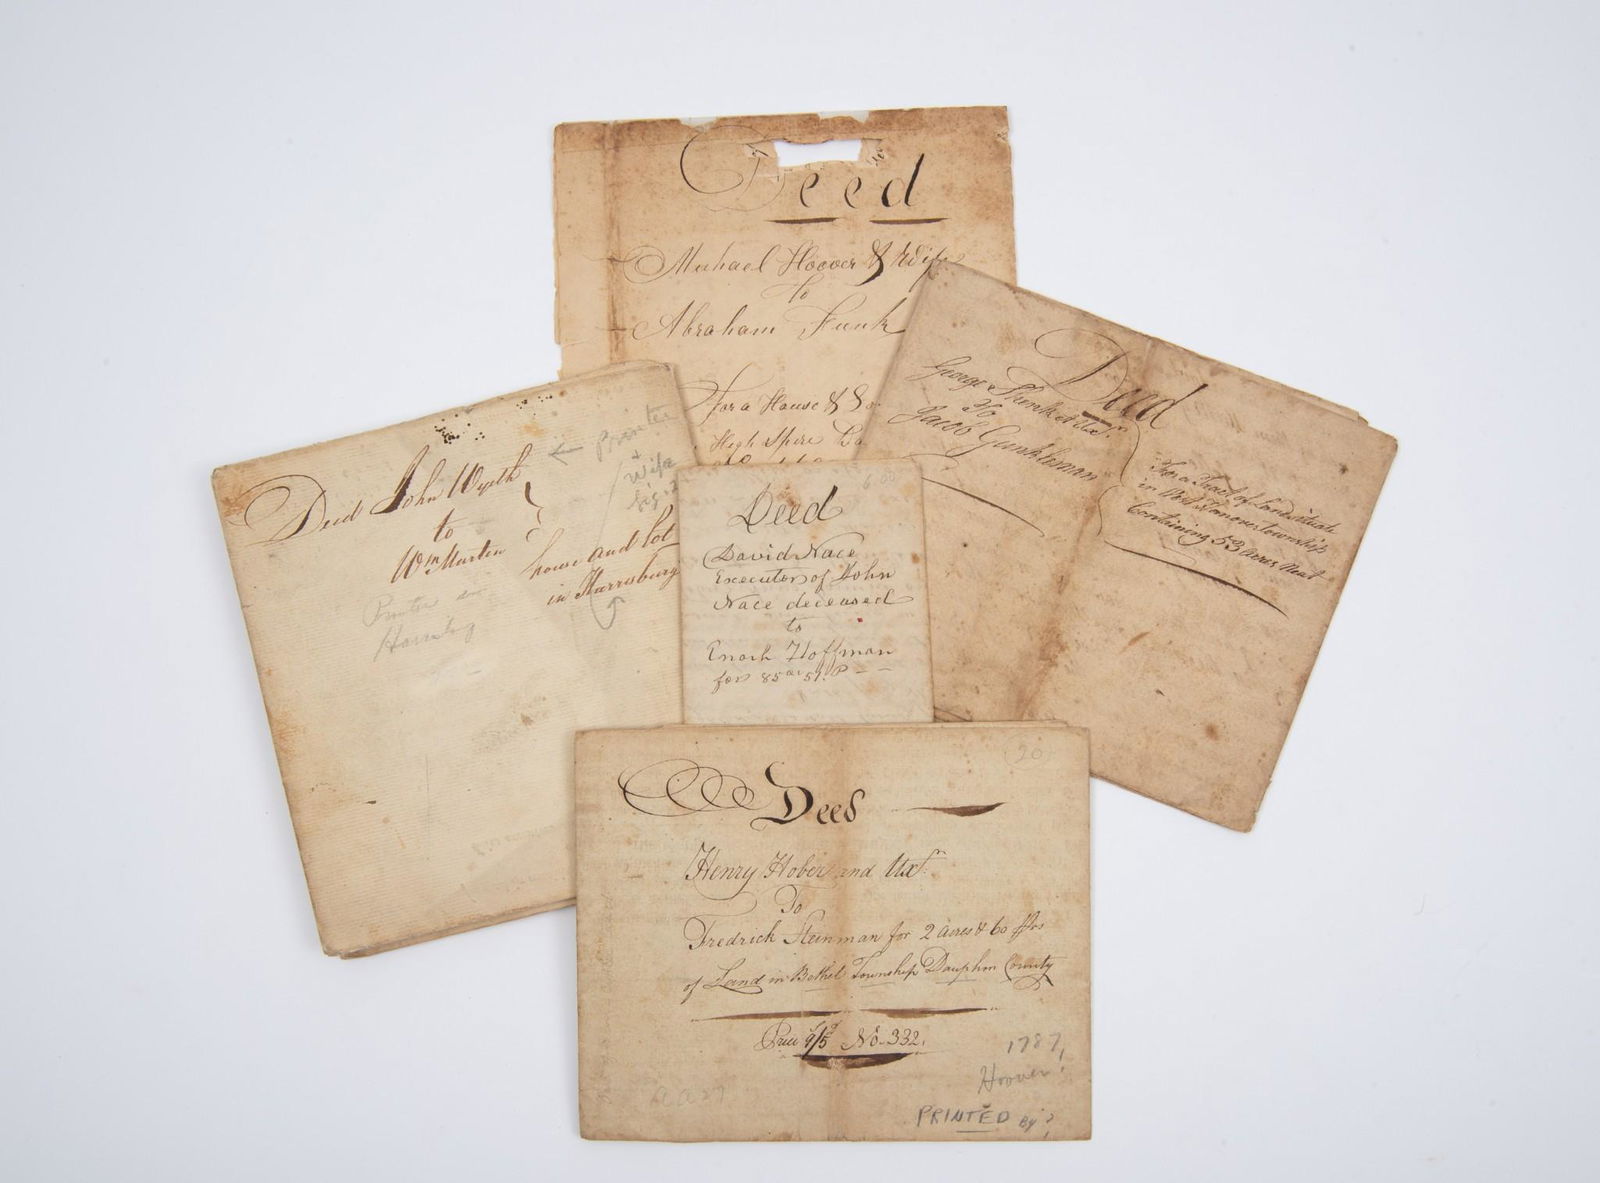 Deed
Michael Hoover & Wife
to
Abraham Funk
for a House & Lo
High Spire
Deed
George Shenk et Uxr.
To
Jacob Gunkleman
For a Tract of Land situate
in West Hanover township
Containing 53 acres Neat
Deed John Wyeth
to
Wm Murten
house and lot
in Harrisburg
← Printer
+
Wife
Printer in
Harrisbg
6.00
Deed
David Nace
Executor of John
Nace deceased
to
Enoch Hoffman
for 85 ar 51 P
20
Deed
Henry Hober and Uxr.
To
Fredrick Steinman for 2 Acres & 60 Prs
of Land in Bethel Township Dauphin County
Price 9/5 No. 332.
1787
Hoover!
PRINTED By?